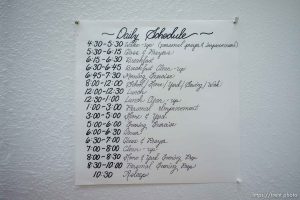 ~ Daily Schedule ~
4:30-5:30 Wake-up (personal prayer & improvement)
5:30-6:15 Class & Prayer
6:15-6:30 Breakfast
6:30-6:45 Breakfast Clean-up
6:45-7:30 Morning Exercise
8:00-12:00 School / Home / Yard / Sewing / Work
12:00-12:30 Lunch
12:30-1:00 Lunch Clean-up
1:00-3:00 Personal Improvement
3:00-5:00 Home & Yard
5:00-6:00 Evening Exercise
6:00-6:30 Dinner
6:30-7:00 Class & Prayer
7:00-8:00 Clean-up
8:00-8:30 Home & Yard Evening Prep
8:30-10:00 Personal Evening Prep
10:30 Retire